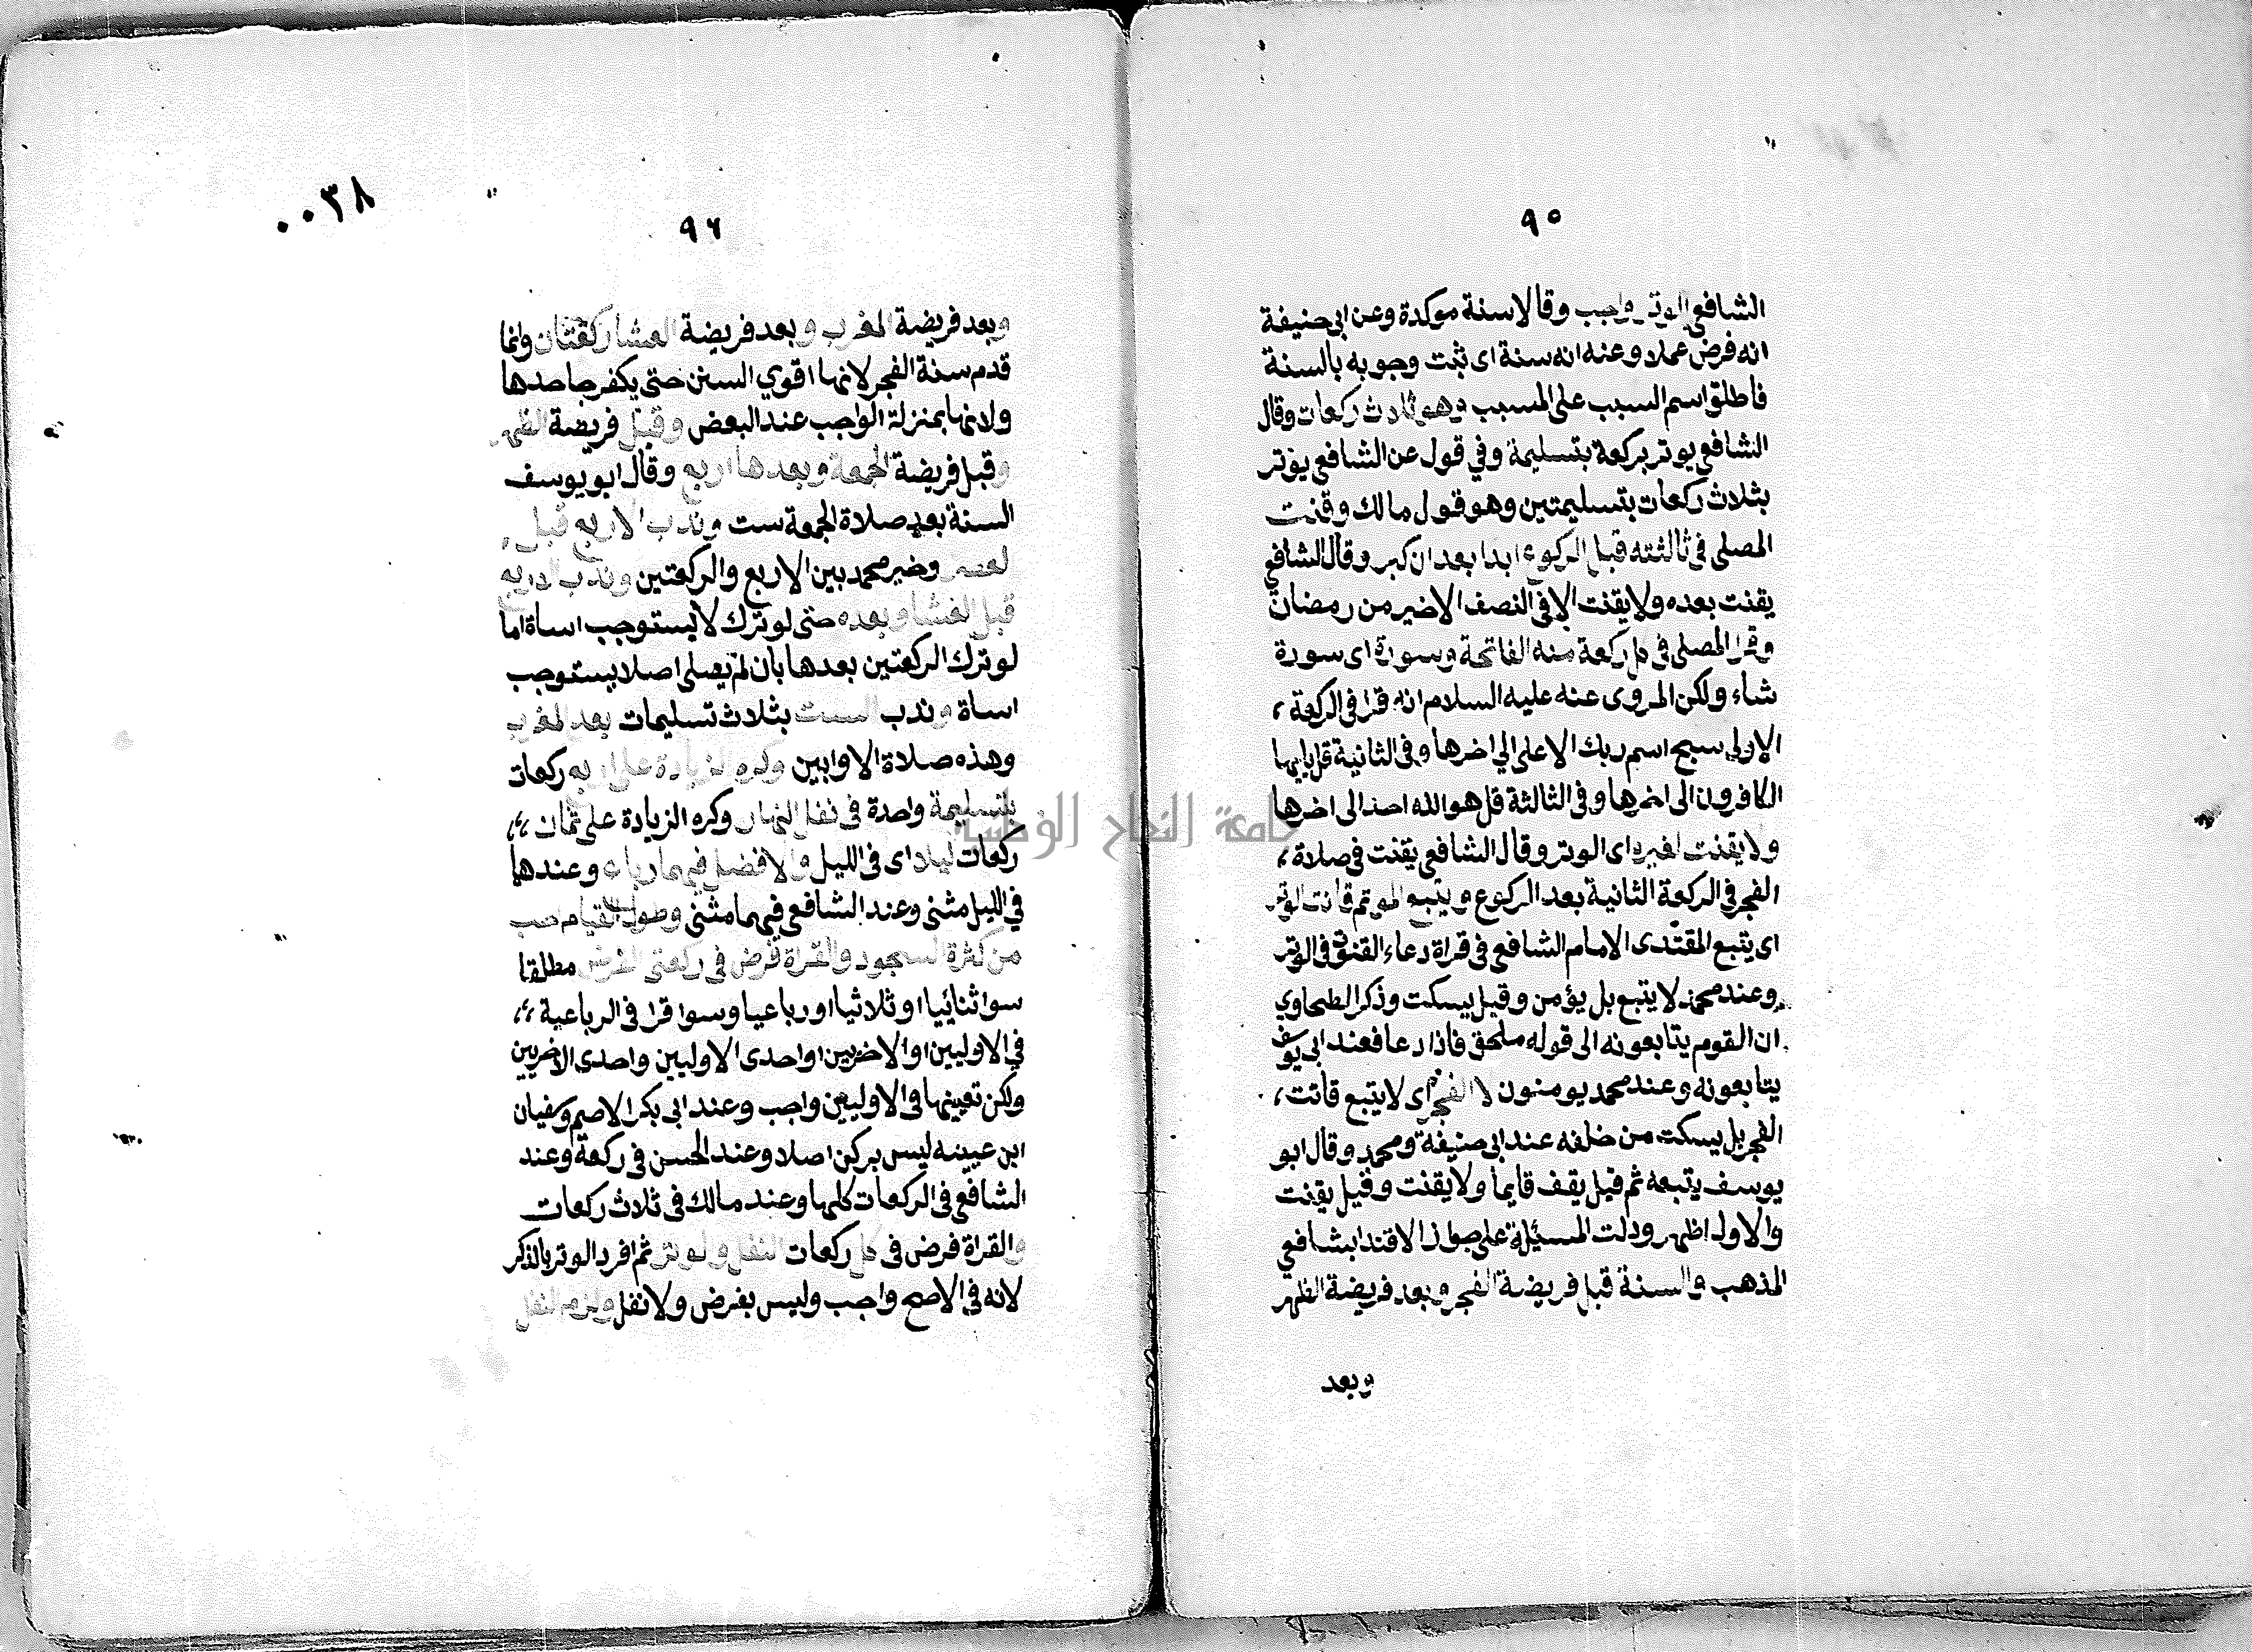 ٩٥
الشافعي الوتر واجب وقالا سنة موكدة وعن ابي حنيفة
انه فرض عملا وعنه انه سنة اى ثبت وجوبه بالسنة
فاطلق اسم السبب على المسبب وهو ثلاث ركعات وقال
الشافعي يوتر بركعة بتسليمة وفي قول عن الشافعي يوتر
بثلاث ركعات بتسليمتين وهو قول مالك وقنت
المصلى في ثالثته قبل الركوع ابدا بعد ان كبر وقال الشافعي
يقنت بعده ولا يقنت الا في النصف الاخير من رمضان
وقرا المصلى في كل ركعة منه الفاتحة وسورة اى سورة
شاء ولكن المروى عنه عليه السلام انه قرا في الركعة
الاولى سبح اسم ربك الاعلى الي اخرها وفي الثانية قل يايها
الكافرون الى اخرها وفي الثالثة قل هو الله احد الى اخرها
ولا يقنت لغيره اى الوتر وقال الشافعي يقنت في صلاة
الفجر في الركعة الثانية بعد الركوع ويتبع الموتم قانت الوتر
اى يتبع المقتدى الامام الشافعي في قراة دعاء القنوت في الوتر
وعند محمد لا يتبع بل يؤمن وقيل يسكت وذكر الطحاوي
ان القوم يتابعونه الى قوله ملحق فاذا دعا فعند ابى يوسف
يتابعونه وعند محمد يومنون لا الفجر اى لا يتبع قانت
الفجر بل يسكت من خلفه عند ابى حنيفة ومحمد وقال ابو
يوسف يتبعه ثم قيل يقف قايما ولا يقنت وقيل يقنت
والاول اظهر ودلت المسئلة على جواز الاقتدا بشافعي
المذهب والسنة قبل فريضة الفجر وبعد فريضة الظهر
وبعد
٠٠٣٨
٩٦
وبعد فريضة المغرب وبعد فريضة العشا ركعتان وانما
قدم سنة الفجر لانها اقوي السنن حتى يكفر جاحدها
ولانها بمنزلة الواجب عند البعض وقبل فريضة الظهر
وقبل فريضة الجمعة وبعدها اربع وقال ابو يوسف
السنة بعد صلاة الجمعة ست وندب الاربع قبل
العصر وخير محمد بين الاربع والركعتين وندب الاربع
قبل العشا وبعده حتى لو ترك لا يستوجب اساة اما
لو ترك الركعتين بعدها بان لم يصلى اصلا يستوجب
اساة وندب الست بثلاث تسليمات بعد المغرب
وهذه صلاة الاوابين وكره الزيادة على اربع ركعات
بتسليمة واحدة في نفل النهار وكره الزيادة على ثمان
ركعات ليلا اى في الليل والافضل فيهما رباع وعندهما
في الليل مثنى وعند الشافعي فيهما مثنى وطول القيام احب
من كثرة السجود والقراة فرض في ركعتى الفرض مطلقا
سوا ثنائيا او ثلاثيا او رباعيا وسوا قرا في الرباعية
في الاوليين او الاخريين او احدى الاوليين واحدى الاخريين
ولكن تعيينها في الاوليين واجب وعند ابى بكر الاصم وسفيان
ابن عيينه ليس بركن اصلا وعند الحسن في ركعة وعند
الشافعي في الركعات كلها وعند مالك في ثلاث ركعات
والقراة فرض في كل ركعات النفل والوتر ثم افرد الوتر بالذكر
لانه في الاصح واجب وليس بفرض ولا نفل ولزم النفل
جامعة النجاح الوطنية